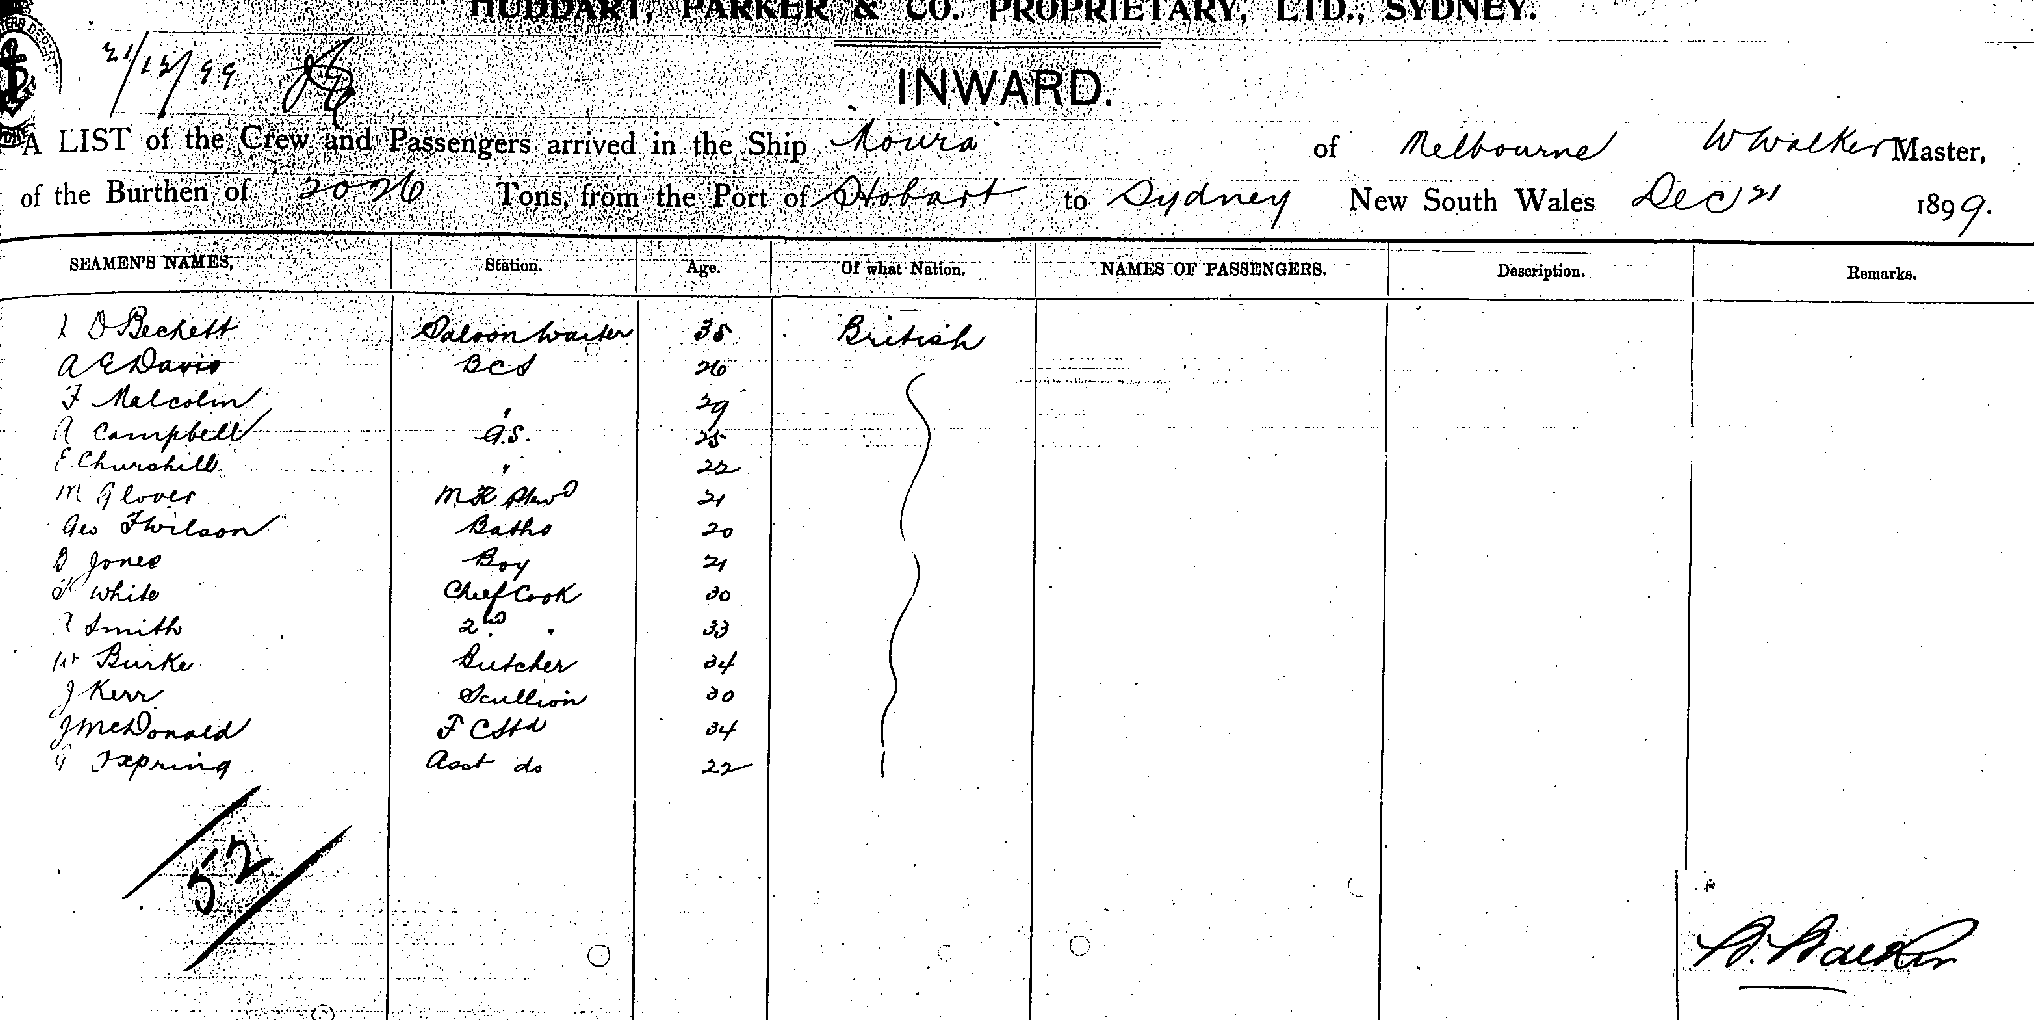 HUDDART, PARKER & CO. PROPRIETARY, LTD., SYDNEY.
21/12/99
INWARD.
A LIST of the Crew and Passengers arrived in the Ship Noura of Melbourne W Walker Master,
of the Burthen of 2026 Tons, from the Port of Hobart to Sydney New South Wales Dec 21 1899.
SEAMEN'S NAMES, Station. Age. Of what Nation. NAMES OF PASSENGERS. Description. Remarks.
D Beckett Saloon Waiter 35 British
A E Davis BCS 26
F Malcolm " 29
A Campbell G.S. 25
E Churchill " 22
M Glover 21
Geo F Wilson Baths 20
B Jones Boy 21
White Chief Cook 30
Smith 2nd " 33
W Burke Butcher 34
J Kerr Scullion 30
J McDonald F C Std 34
Oxpring Asst do 22
52
W. Walker